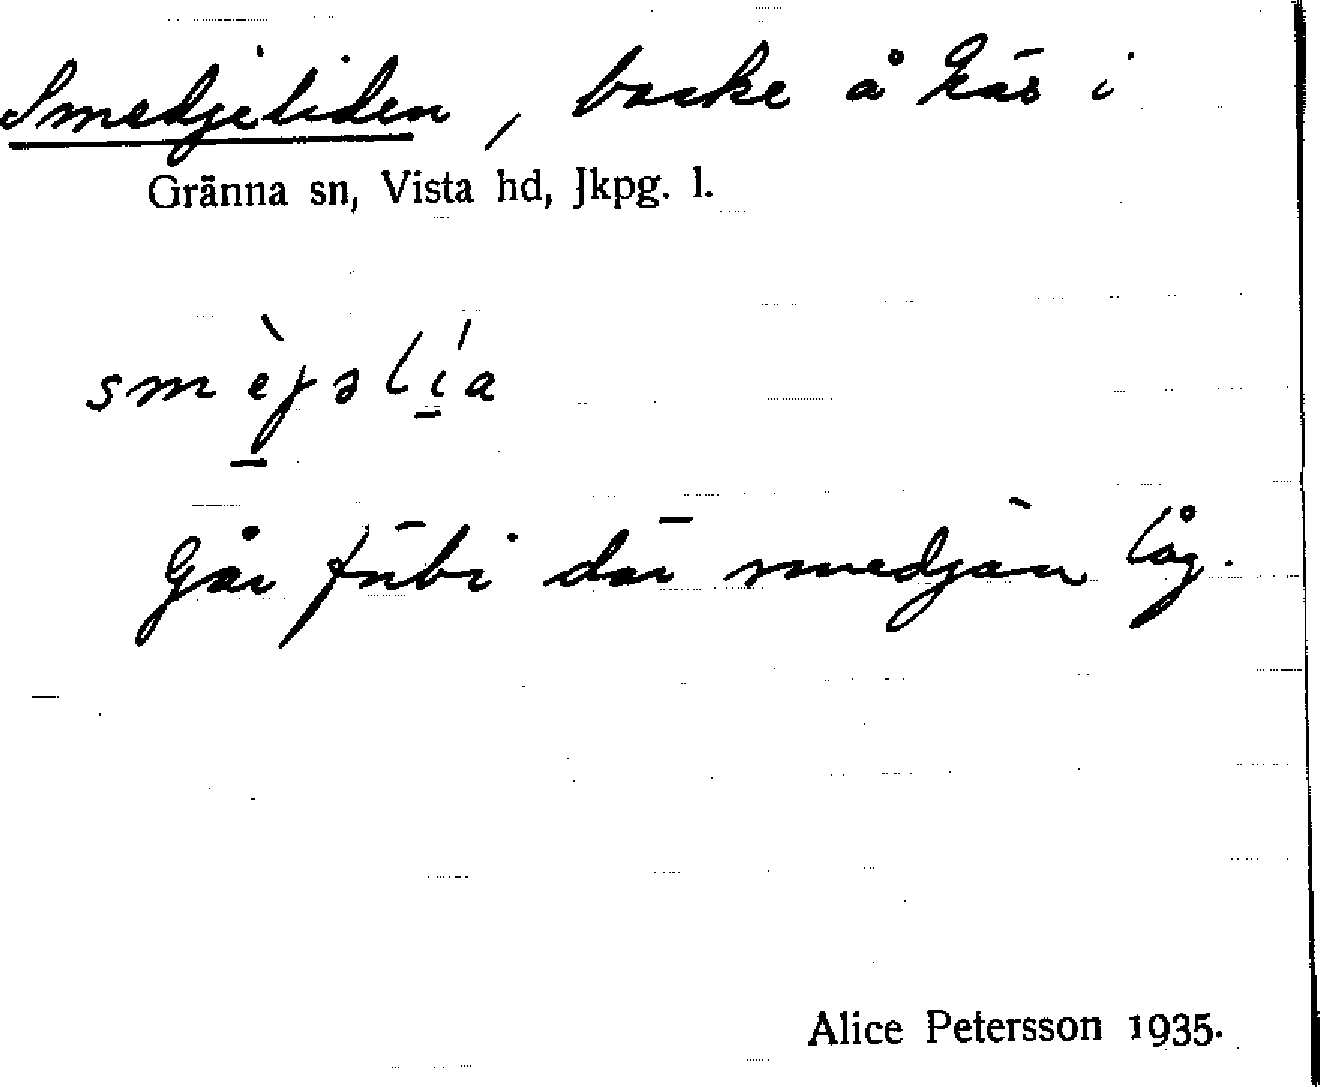 Smedjeliden, backe å Häs i
Gränna sn, Vista hd, Jkpg. l.
smèjəlía
Går förbi där smedjan låg.
Alice Petersson 1935.